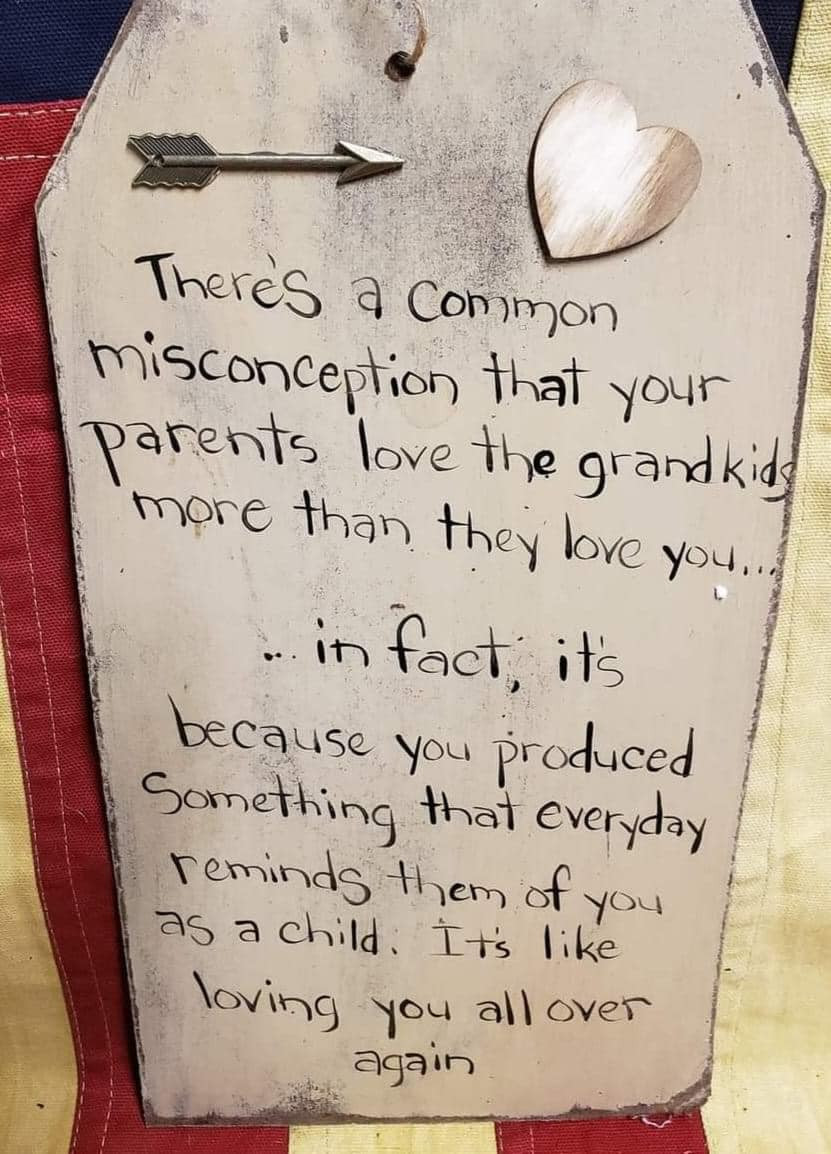 There's a common
misconception that your
parents love the grandkids
more than they love you...
... in fact, it's
because you produced
Something that everyday
reminds them of you
as a child. It's like
loving you all over
again